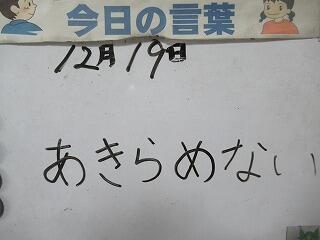 今日の言葉
12月19日
あきらめない